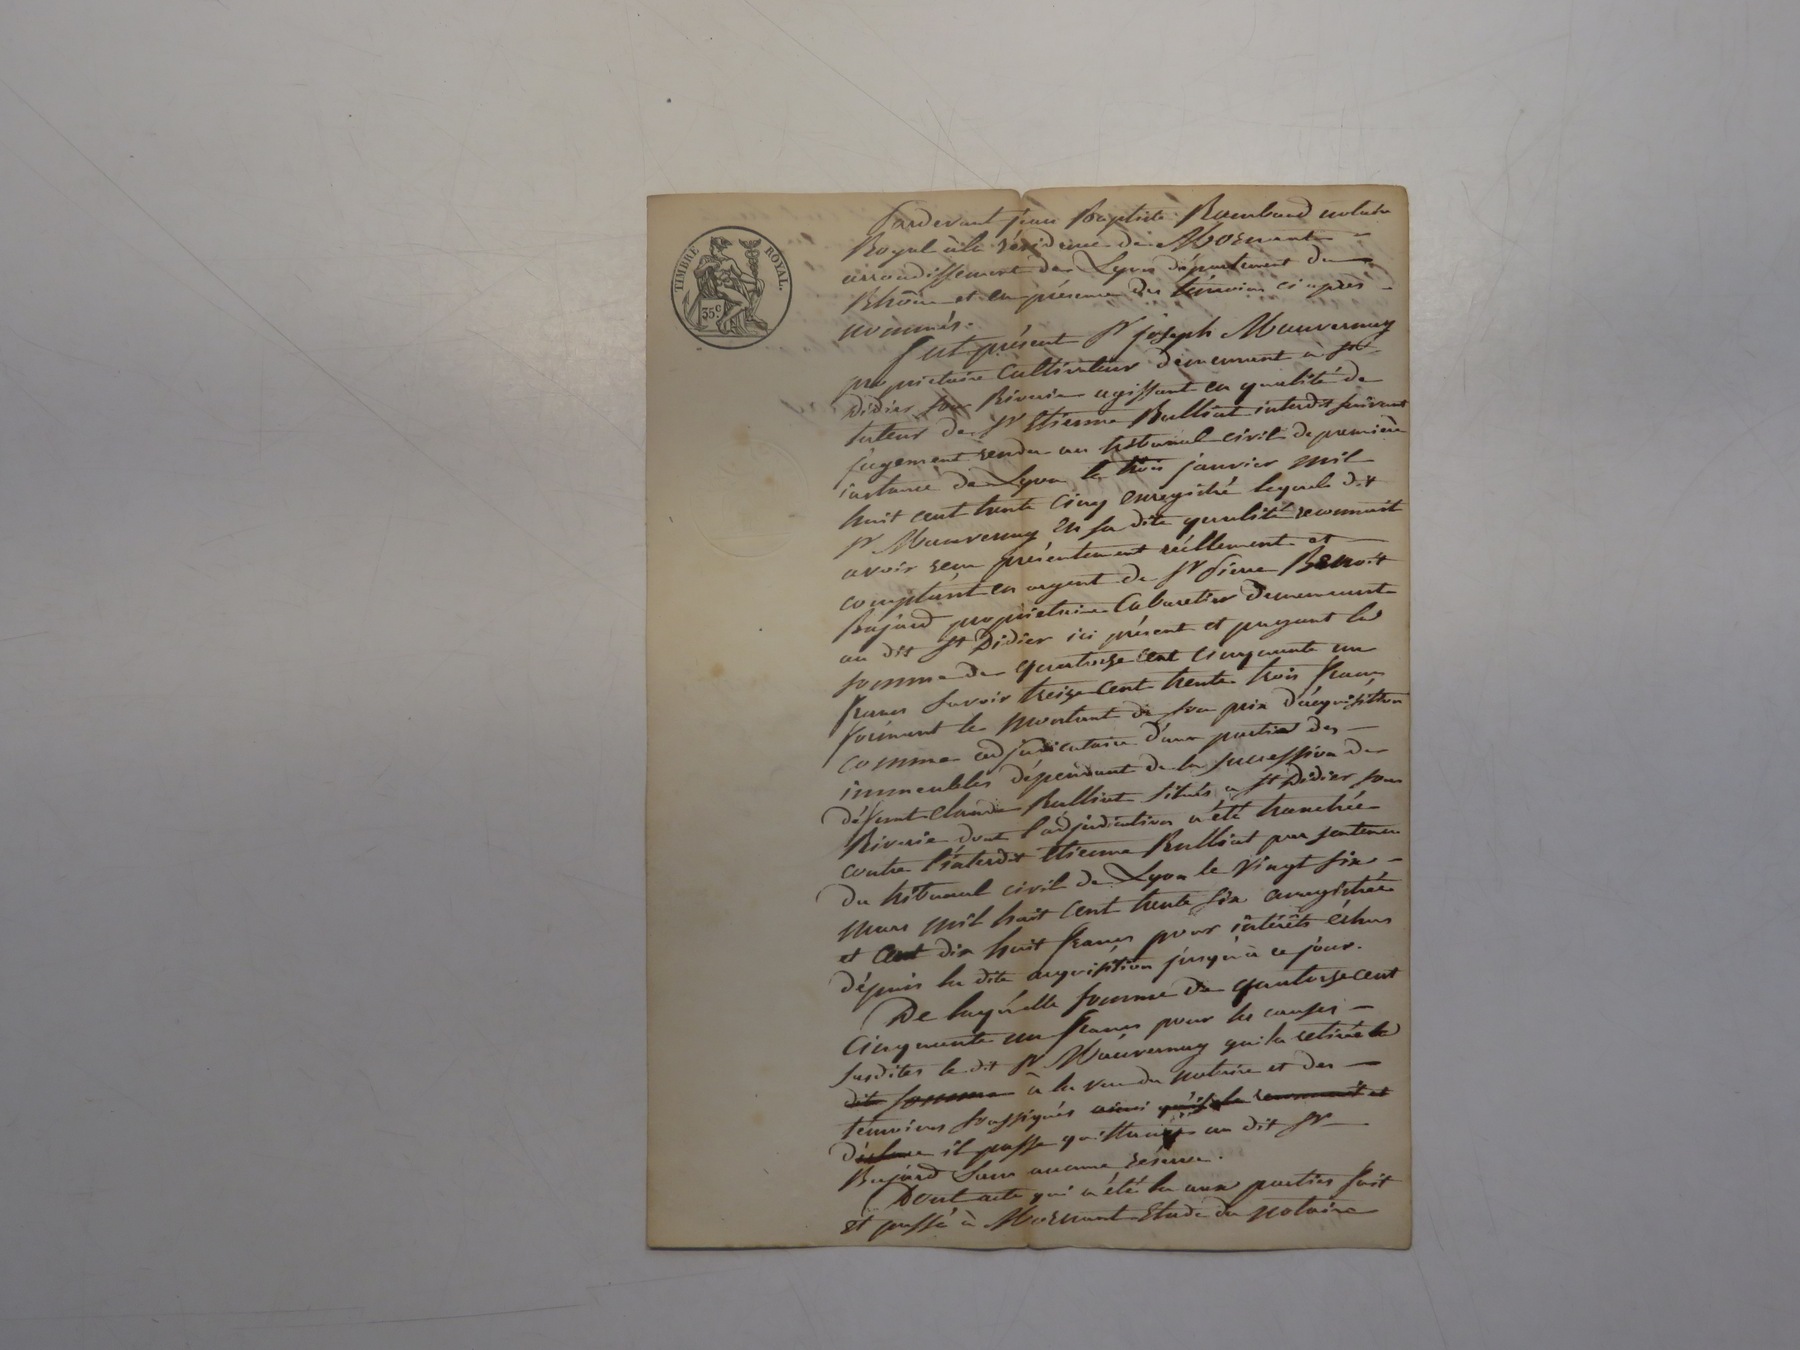 TIMBRE ROYAL.
35 c.
Pardevant Jean Baptiste Rambaud notaire
Royal à la résidence de Mornant
arrondissement de Lyon département du
Rhône et en présence des témoins ci après
nommés.
Fut présent Sr joseph Mauvernay
propriétaire Cultivateur demeurant à St
Didier sous Riverie agissant en qualité de
tuteur de Sr Etienne Bulliat interdit suivant
jugement rendu au tribunal civil de première
instance de Lyon le trois janvier mil
huit cent trente cinq enregistré lequel dit
Sr Mauvernay en sa dite qualité reconnait
avoir reçu présentement réellement et
comptant en argent de Sr Pierre Benoit
Bajard propriétaire Cabaretier demeurant
au dit St Didier ici présent et payant la
somme de quatorze cent cinquante un
francs Savoir treize cent trente trois francs
formant le montant de son prix d'acquisition
comme adjudicataire d'une partie des
immeubles dépendant de la succession de
défunt Claude Bulliat situés à St Didier sous
Riverie dont l'adjudication a été tranchée
contre l'interdit Etienne Bulliat par sentence
du tribunal civil de Lyon le vingt six
mars mil huit cent trente six enregistrée
et cent dix huit francs pour intérêts échus
dépuis la dite acquisition jusqu'à ce jour.
De laquelle somme de quatorze cent
cinquante un francs pour les causes
susdites le dit Sr Mauvernay qui la retirée
dite somme à la vue du notaire et des
témoins soussignés ainsi qu'il le reconnait et
déclare il passe quittance au dit Sr
Bajard sans aucune réserve.
Dont acte qui a été lu aux parties fait
et passé à Mornant Etude du notaire